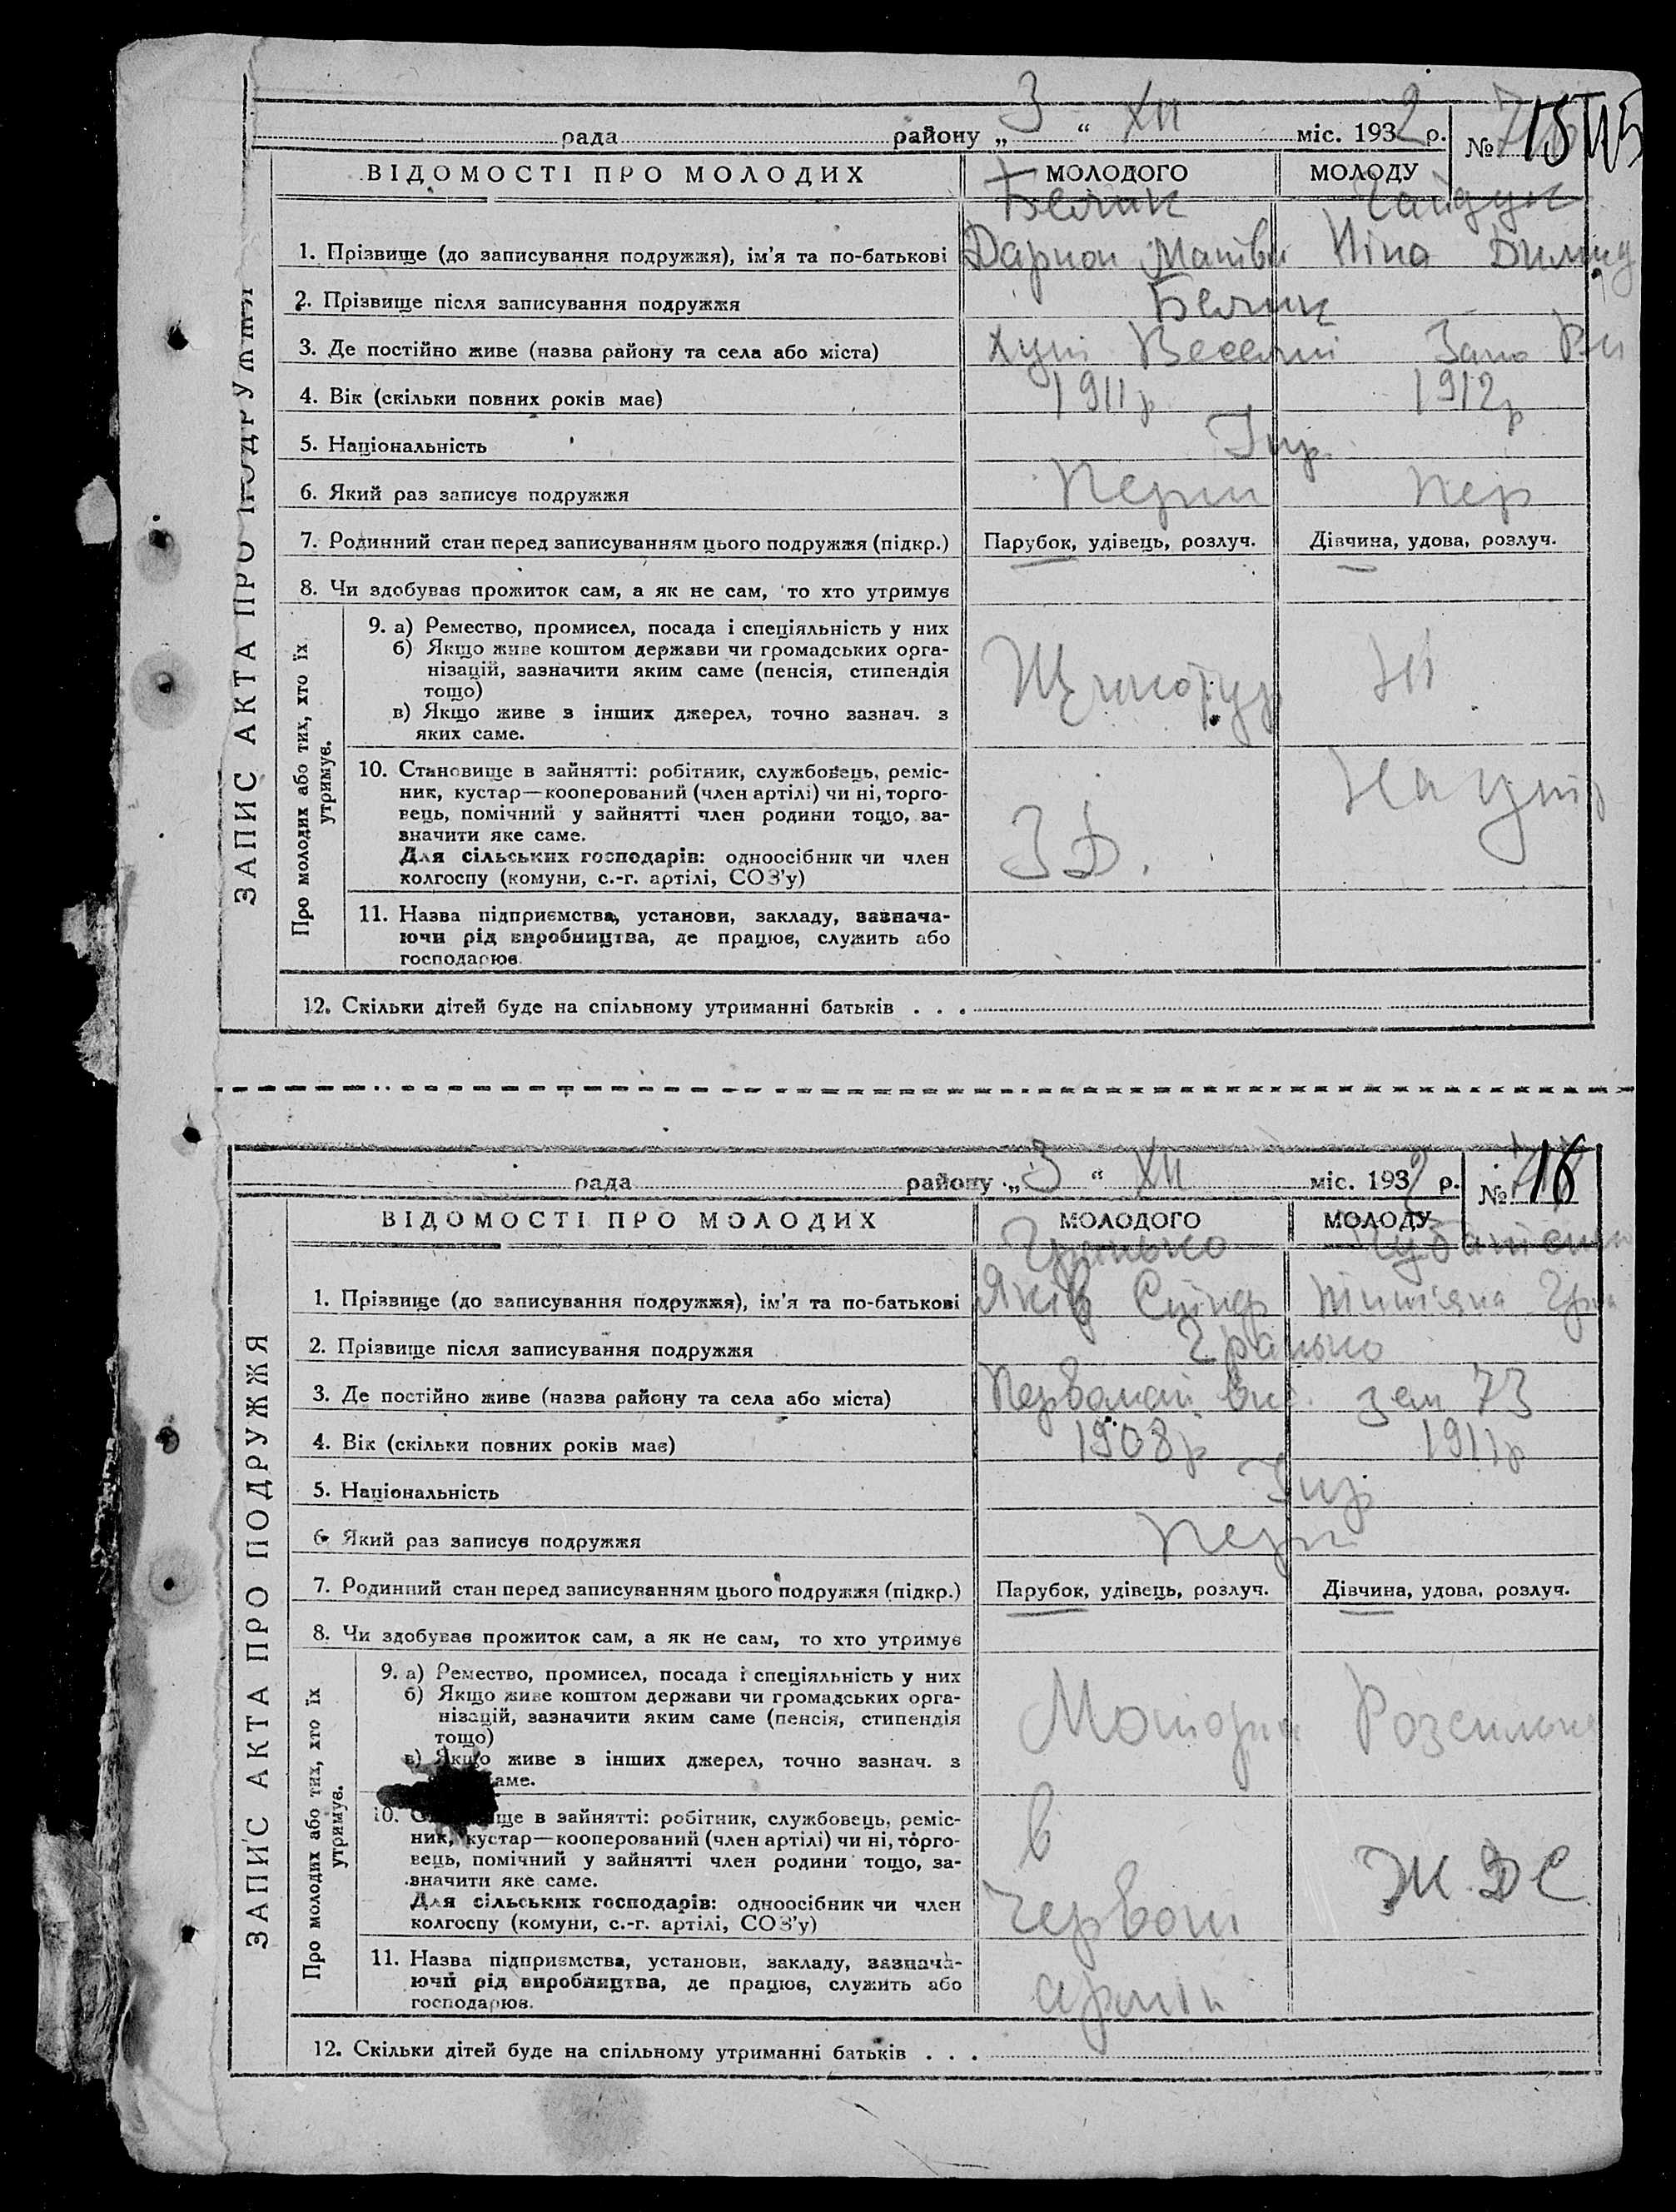 рада району „3“ XII міс. 1932 р. № 15
ВІДОМОСТІ ПРО МОЛОДИХ МОЛОДОГО МОЛОДУ
Белик Гайдук
1. Прізвище (до записування подружжя), ім'я та по-батькові Матв Ніна
2. Прізвище після записування подружжя Белик
3. Де постійно живе (назва району та села або міста) Хут Веселий
4. Вік (скільки повних років має) 1911р 1912р
5. Національність Укр.
6. Який раз записує подружжя Перш пер
7. Родинний стан перед записуванням цього подружжя (підкр.) Парубок, удівець, розлуч. Дівчина, удова, розлуч.
8. Чи здобуває прожиток сам, а як не сам, то хто утримує
ЗАПИС АКТА ПРО ПОДРУЖЖЯ
Про молодих або тих, хто їх утримує.
9. а) Ремество, промисел, посада і спеціяльність у них
б) Якщо живе коштом держави чи громадських орга-
нізацій, зазначити яким саме (пенсія, стипендія
тощо)
в) Якщо живе з інших джерел, точно зазнач. з
яких саме.
Ні
10. Становище в зайнятті: робітник, службовець, реміс-
ник, кустар—кооперований (член артілі) чи ні, торго-
вець, помічний у зайнятті член родини тощо, за-
значити яке саме.
Для сільських господарів: одноосібник чи член
колгоспу (комуни, с.-г. артілі, СОЗ'у)
На утр
11. Назва підприємства, установи, закладу, зазнача-
ючи рід виробництва, де працює, служить або
господарює.
12. Скільки дітей буде на спільному утриманні батьків . . .
рада району „3“ XII міс. 1932 р. № 16
ВІДОМОСТІ ПРО МОЛОДИХ МОЛОДОГО МОЛОДУ
1. Прізвище (до записування подружжя), ім'я та по-батькові Яків
2. Прізвище після записування подружжя
3. Де постійно живе (назва району та села або міста) Первомай вис. зем 73
4. Вік (скільки повних років має) 1908р 1911р
5. Національність Укр
6. Який раз записує подружжя Перш
7. Родинний стан перед записуванням цього подружжя (підкр.) Парубок, удівець, розлуч. Дівчина, удова, розлуч.
8. Чи здобуває прожиток сам, а як не сам, то хто утримує
ЗАПИС АКТА ПРО ПОДРУЖЖЯ
Про молодих або тих, хто їх утримує.
9. а) Ремество, промисел, посада і спеціяльність у них
б) Якщо живе коштом держави чи громадських орга-
нізацій, зазначити яким саме (пенсія, стипендія
тощо)
в) Якщо живе з інших джерел, точно зазнач. з
саме.
10. в зайнятті: робітник, службовець, реміс-
ник, кустар—кооперований (член артілі) чи ні, торго-
вець, помічний у зайнятті член родини тощо, за-
значити яке саме.
Для сільських господарів: одноосібник чи член
колгоспу (комуни, с.-г. артілі, СОЗ'у)
в
Червоні
армії
11. Назва підприємства, установи, закладу, зазнача-
ючи рід виробництва, де працює, служить або
господарює.
12. Скільки дітей буде на спільному утриманні батьків . . .